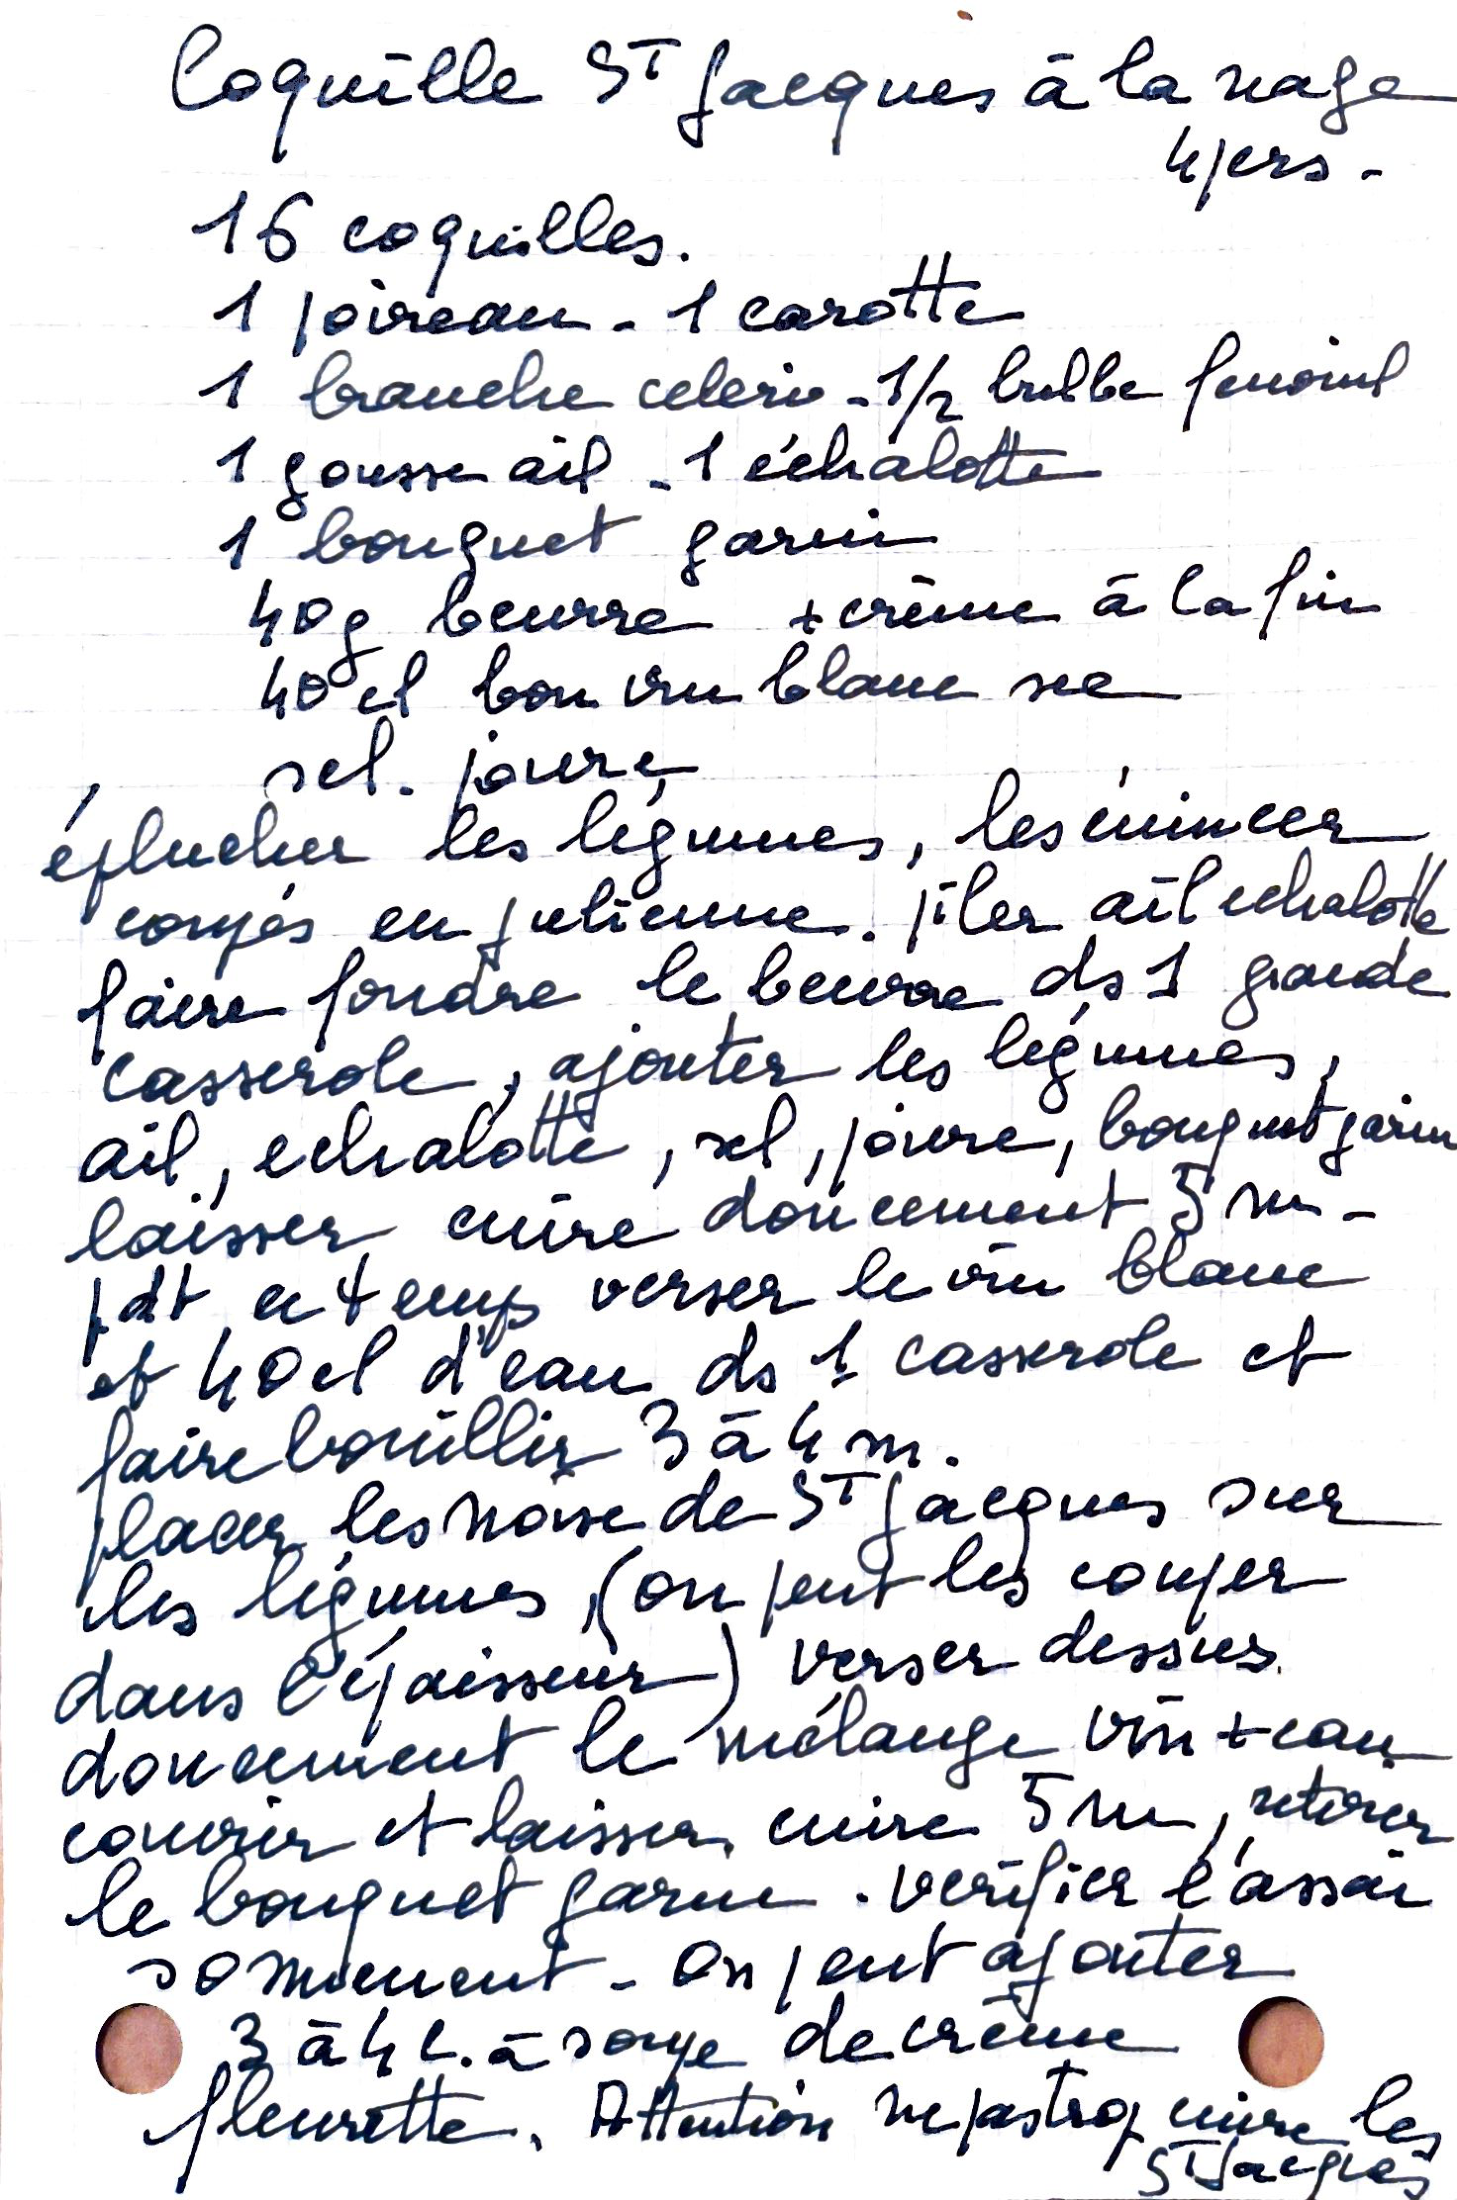 Coquille ST Jacques à la nage
4 pers -
16 coquilles.
1 poireau - 1 carotte
1 branche celeri - 1/2 bulbe fenouil
1 gousse ail - 1 échalotte
1 bouquet garni
40g beurre + crème à la fin
40 cl bon vin blanc sec
sel. poivre
éplucher les légumes, les émincer
coupés en julienne. piler ail echalotte
faire fondre le beurre ds 1 grande
casserole, ajouter les légumes,
ail, echalotte, sel, poivre, bouquet garni
laisser cuire doucement 5 m -
pdt ce temps verser le vin blanc
et 40 cl d'eau ds 1 casserole et
faire bouillir 3 à 4 m.
placer les noix de ST Jacques sur
les légumes, (on peut les couper
dans l'épaisseur) verser dessus
doucement le mélange vin + eau
couvrir et laisser cuire 5 m, retirer
le bouquet garni. vérifier l'assai
sonnement - On peut ajouter
3 à 4 c. à soupe de crème
fleurette. Attention ne pas trop cuire les
ST Jacques